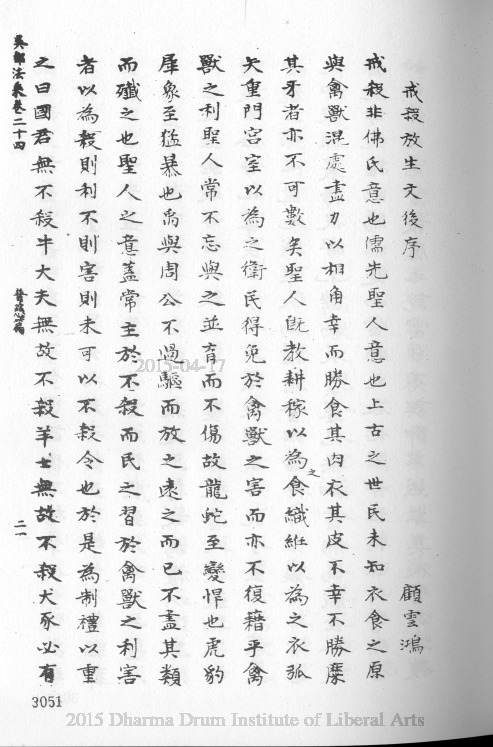 戒殺放生文後序
顧雲鴻
戒殺非佛氏意也儒先聖人意也上古之世民未知衣食之原
與禽獸混處盡力以相角幸而勝食其肉衣其皮不幸不勝縻
其牙者亦不可數矣聖人既教耕稼以為之食織絍以為之衣弧
矢重門宮室以為之衛民得免於禽獸之害而亦不復藉乎禽
獸之利聖人常不忘與之並育而不傷故龍蛇至變悍也虎豹
犀象至猛暴也禹與周公不過驅而放之遠之而已不盡其類
而殱之也聖人之意蓋常主於不殺而民之習於禽獸之利害
者以為殺則利不則害則未可以不殺令也於是為制禮以重
之曰國君無不殺牛大夫無故不殺羊士無故不殺犬豕必有
吳都法乘卷二十四
二一
3051
2015-04-17
2015 Dharma Drum Institute of Liberal Arts